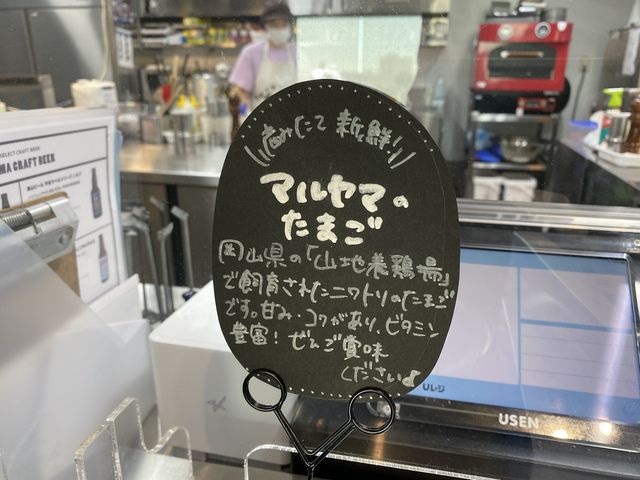 産みたて新鮮!
マルヤマの
たまご
岡山県の「山地養鶏場」
で飼育されたニワトリのたまご
です。甘み・コクがあり、ビタミン
豊富!ぜひご賞味
くださいよ
SELECT CRAFT BEER
MA CRAFT BEER
Uレジ
USEN